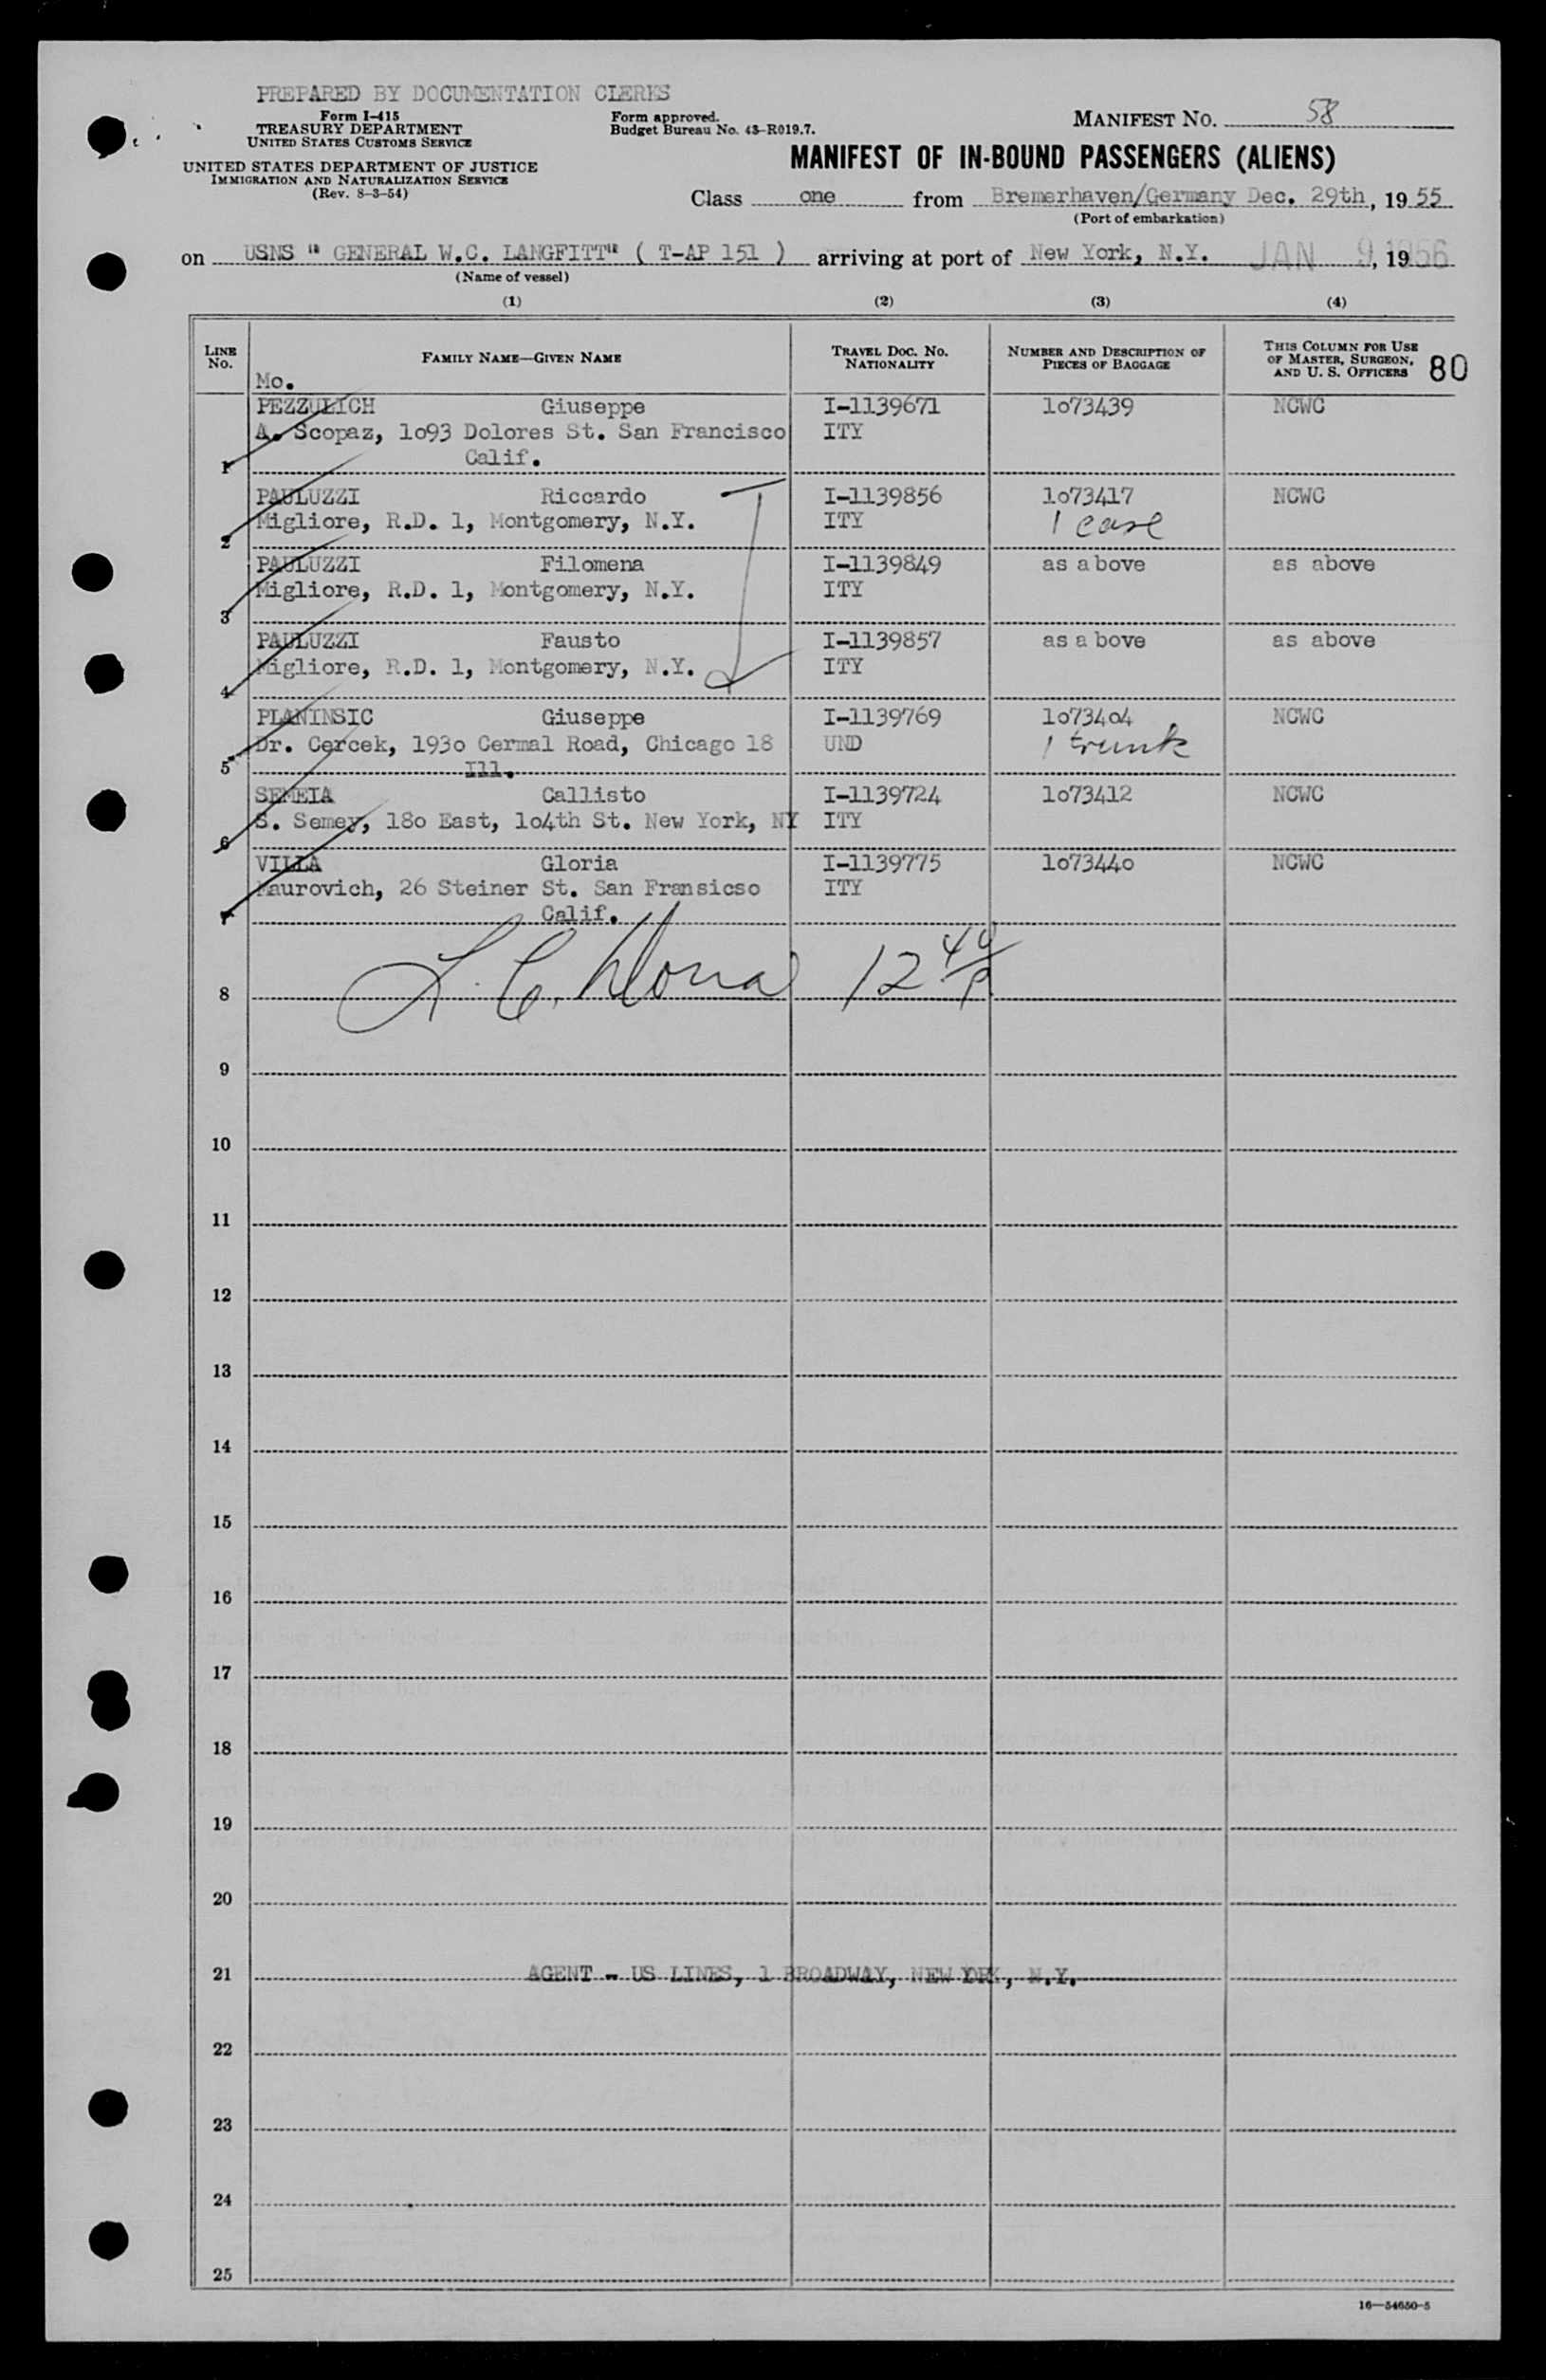 PREPARED BY DOCUMENTATION CLERKS
Form I-415
TREASURY DEPARTMENT
UNITED STATES CUSTOMS SERVICE
UNITED STATES DEPARTMENT OF JUSTICE
IMMIGRATION AND NATURALIZATION SERVICE
(Rev. 8-3-54)
Form approved.
Budget Bureau No. 43-R019.7.
MANIFEST NO. 58
MANIFEST OF IN-BOUND PASSENGERS (ALIENS)
Class one from Bremerhaven/Germany Dec. 29th, 1955
(Port of embarkation)
on USNS " GENERAL W.C. LANGFITT" ( T-AP 151 ) arriving at port of New York, N.Y. JAN 9 1956, 19
(Name of vessel)
(1) (2) (3) (4)
LINE NO. FAMILY NAME—GIVEN NAME TRAVEL DOC. NO. NATIONALITY NUMBER AND DESCRIPTION OF PIECES OF BAGGAGE THIS COLUMN FOR USE OF MASTER, SURGEON, AND U. S. OFFICERS 80
Mo.
PEZZULICH Giuseppe I-1139671 1o73439 NCWC
A. Scopaz, 1o93 Dolores St. San Francisco ITY
1 Calif.
PAULUZZI Riccardo I-1139856 1o73417 NCWC
2 Migliore, R.D. 1, Montgomery, N.Y. ITY 1 case
PAULUZZI Filomena I-1139849 as above as above
3 Migliore, R.D. 1, Montgomery, N.Y. ITY
PAULUZZI Fausto I-1139857 as a bove as above
4 Migliore, R.D. 1, Montgomery, N.Y. ITY
PLANINSIC Giuseppe I-1139769 1o734o4 NCWC
Dr. Cercek, 193o Cermal Road, Chicago 18 UND 1 trunk
5 Ill.
SEMEIA Callisto I-1139724 1o73412 NCWC
6 S. Semey, 18o East, 1o4th St. New York, NY ITY
VILLA Gloria I-1139775 1o7344o NCWC
Maurovich, 26 Steiner St. San Fransicso ITY
7 Calif.
8
9
10
11
12
13
14
15
16
17
18
19
20
21 AGENT - US LINES, 1 BROADWAY, NEW YORK, N.Y.
22
23
24
25
16—54650-5